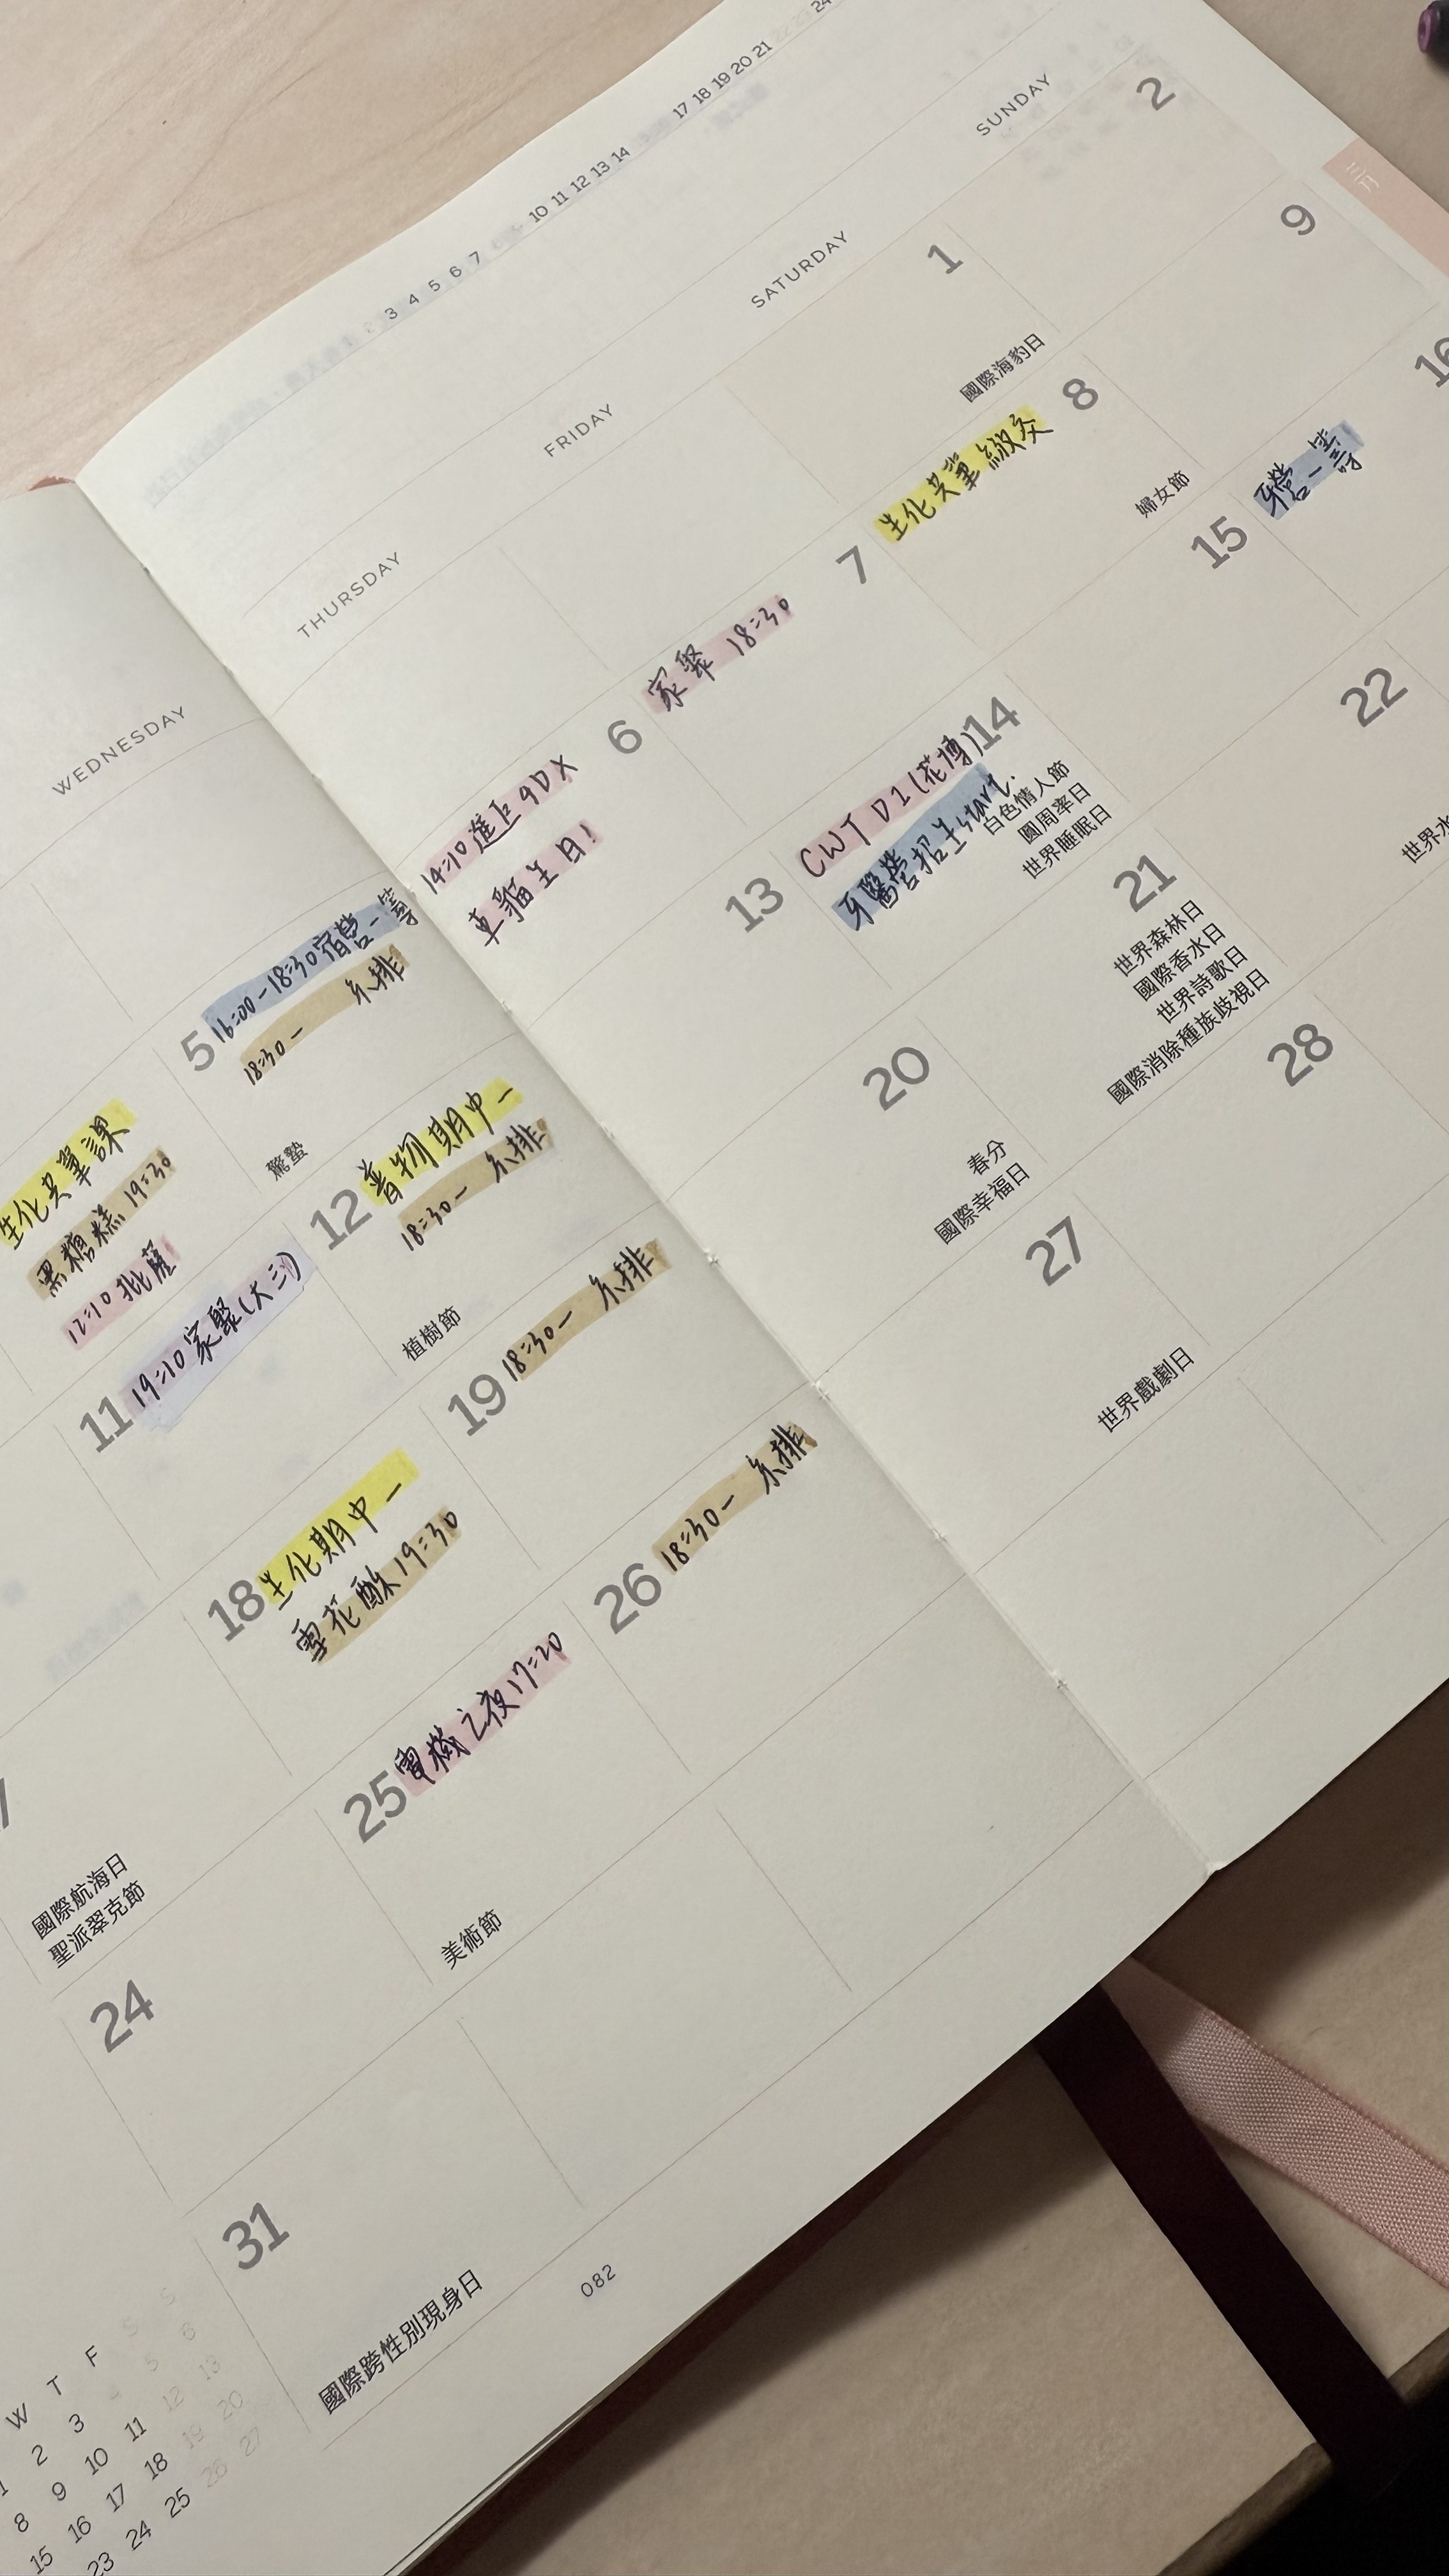 3 4 5 6 7
10 11 12 13 14
17 18 19 20 21
24
三月
WEDNESDAY
THURSDAY
FRIDAY
SATURDAY
SUNDAY
1
國際海豹日
2
生化共筆課
黑糖糕 19:30
12:10 批薩
5
16:00-18:30 宿營一籌
18:30- 系排
驚蟄
6
14:10 進巨 4DX
生日!
7
家聚 18:30
8
生化共筆繳交
婦女節
9
11
19:10 家聚(大三)
12
普物期中一
18:30- 系排
植樹節
13
14
CWT D1(花博)
牙醫營招生start.
白色情人節
圓周率日
世界睡眠日
15
16
牙營一籌
國際航海日
聖派翠克節
18
生化期中一
雪花酥 19:30
19
18:30- 系排
20
春分
國際幸福日
21
世界森林日
國際香水日
世界詩歌日
國際消除種族歧視日
22
世界水
24
25
電機之夜 17:20
美術節
26
18:30- 系排
27
世界戲劇日
28
31
國際跨性別現身日
082
W T F S S
1 2 3 4 5 6
8 9 10 11 12 13
15 16 17 18 19 20
23 24 25 26 27